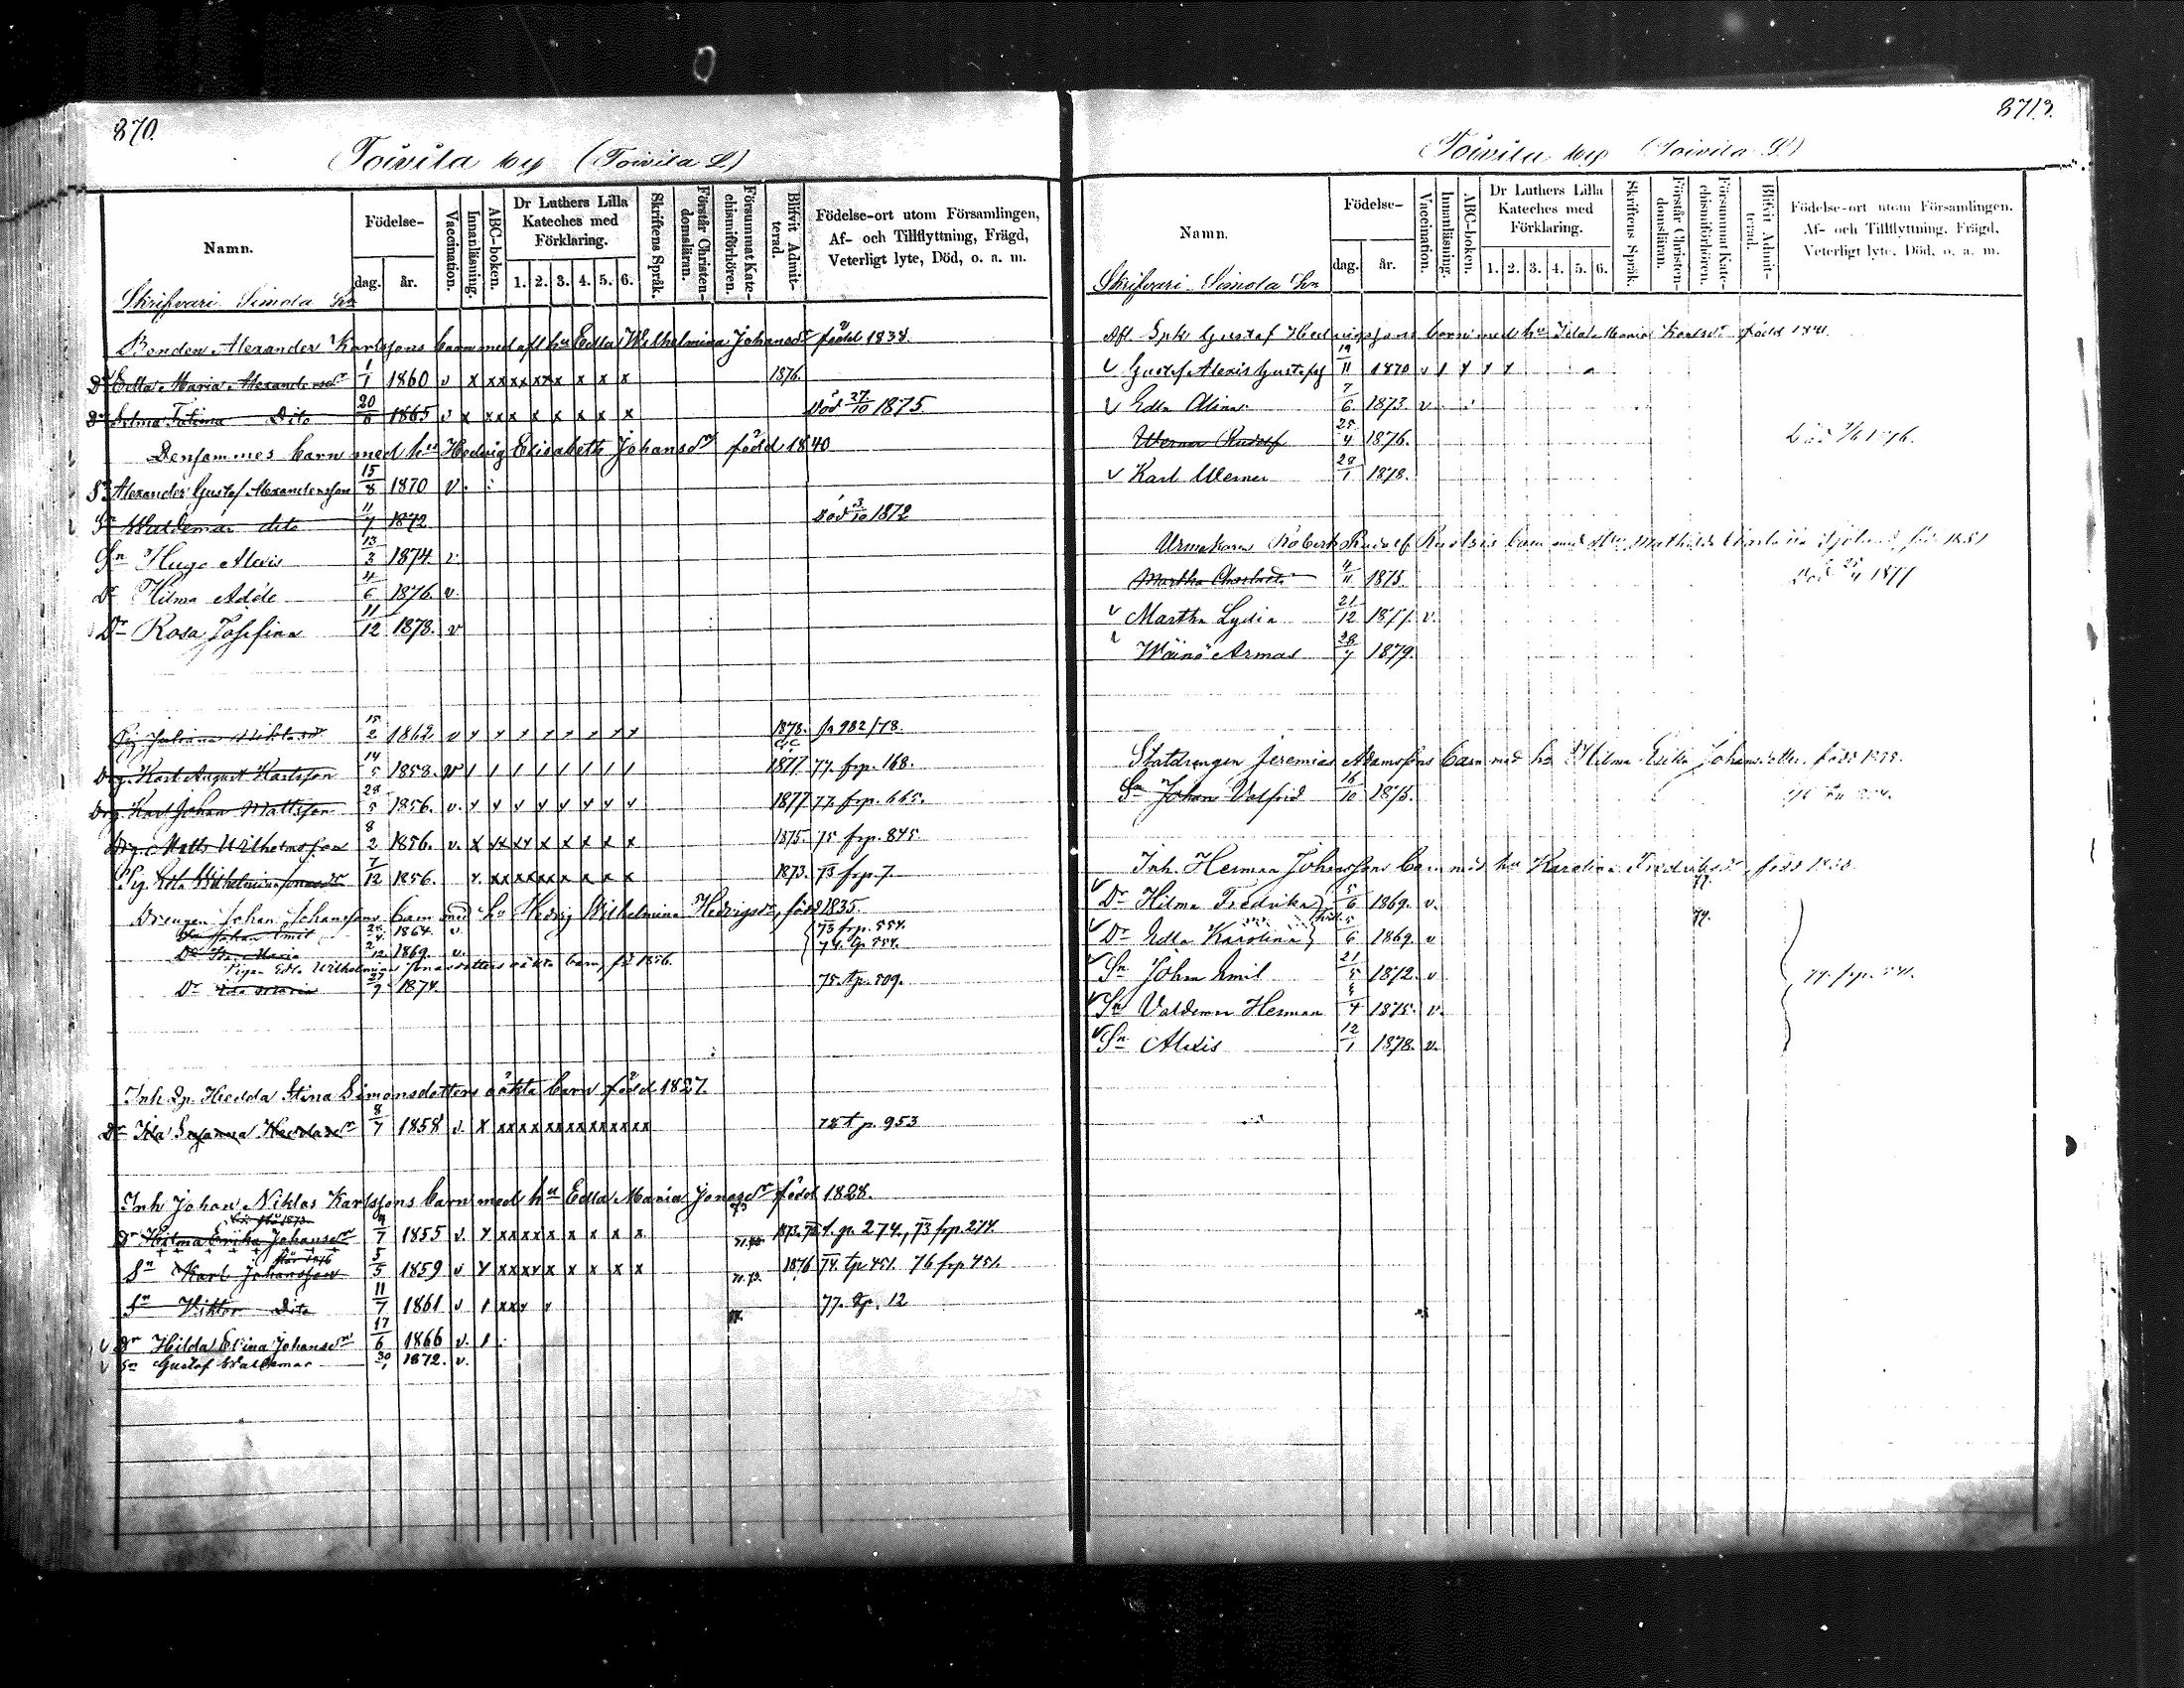 870.
Toivila by (Toivila S.)
Namn.
Födelse-
dag.
år.
Vaccination.
Innanläsning.
ABC-boken.
Dr Luthers Lilla Kateches med Förklaring.
1. 2. 3. 4. 5. 6.
Skriftens Språk.
Förstår Christendomsläran.
Försummat Katechismiförhören.
Blifvit Admitterad.
Födelse-ort utom Församlingen, Af- och Tillflyttning, Frägd, Veterligt lyte, Död, o. a. m.
Skrifvari Simola hn
Bonden Alexander Karlssons barn med afl hu Edla Wilhelmina Johansdr född 1834.
Dr Edla Maria Alexandersdr 1/1 1860 v x xx xx xxx x x x 1876.
Dr Selma Fatima Dito 20/8 1865 v x xxx x x x x x Död 27/10 1875.
Densammes barn med hu Hedvig Elisabeth Johansdr född 1840
Sn Alexander Gustaf Alexandersson 15/8 1870 v.
Sn Waldemar dito 11/7 1872 Död 3/10 1872
Sn Hugo Alexis 13/3 1874. v.
Dr Hilma Adéle 4/6 1876. v.
Dr Rosa Josefina 11/12 1878. v
Pig. Juliana Niklasdr 15/2 1862 v x x x x x x x x 1878. fr 982/78.
Drg. Karl August Karlsson 14/5 1858. v / / / / / / / / 1877 77. frp. 168.
Drg. Karl Johan Mattsson 28/5 1856. v. x x x x x x x x 1877 77. frp. 665.
Drg. Matts Wilhelmsson 8/2 1856. v. x xx xx x x x x x 1875. 75 frp. 845.
Pig. Edla Wilhelmina Jonasdr 7/12 1856. x. xx xx xx x x x x 1873. 73 frp. 7
Drengen Johan Johanssons barn med hu Hedvig Wilhelmina Hedvigsdr, född 1835.
Sn Johan Emil 1864. v 73 frp. 554.
Dr Maria 2/12 1869. v. 74. tp. 554.
Pigan Edla Wilhelmina Jonasdotters oäkta barn, fd 1856.
Dr Ida Maria 27/9 1874. 75. tp. 509.
Inh. Qp. Hedda Stina Simonsdotters oäkta barn född 1827.
Dr Ida Susanna Heddasdr 8/7 1858 v. x xx xx xx xx xx xx xx 78 t p. 953
Inh Johan Niklas Karlssons barn med hu Edla Maria Jonasdr född 1828.
Dr Hilma Erika Johansdr 9/7 1855 v. x xx xx x x x x x 1873. t. p. 274., 73 frp. 274.
Sn Karl Johansson 5/5 1859 v x xx xx x x x x x 71. 73. 1876 74. tp 451. 76 frp 451.
Sn Viktor Dito 11/7 1861 v / xxx x 77. tp. 12
Dr Hilda Elina Johansdr 17/6 1866 v. /
Sn Gustaf Waldemar 30/1 1872. v.
871.
Toivila by (Toivila S.)
Namn.
Födelse-
dag.
år.
Vaccination.
Innanläsning.
ABC-boken.
Dr Luthers Lilla Kateches med Förklaring.
1. 2. 3. 4. 5. 6.
Skriftens Språk.
Förstår Christendomsläran.
Försummat Katechismiförhören.
Blifvit Admitterad.
Födelse-ort utom Församlingen. Af- och Tillflyttning. Frägd, Veterligt lyte. Död. o. a. m.
Skrifvari Simola hn
Afl. Gustaf Hedvigssons barn med hu Ida Maria Karlsdr född 1841.
v Gustaf Alexis Gustafss 19/11 1870 v / x x x
v Edla Alina 7/6 1873. v
Werner Rudolf 25/4 1876. Död 1876.
v Karl Werner 28/1 1878.
Urmakaren Robert Rudolf barn med Hu Mathilda Charlotta född 1851
Martha Charlotta 4/11 1875. Död 25/4 1877
v Martha Lydia 21/12 1877. v.
Wäinö Armas 28/7 1879.
Statdrengen Jeremias Adamssons barn med hu Hilma Edla Johansdotter, född
Sn Johan Valfrid 16/10 1875.
Inh. Herman Johanssons barn med hu Karolina Fredriksdr, född
v Dr Hilma Fredrika 5/6 1869. v. 77.
v Dr Edla Karolina 5/6 1869. v 77.
v Sn Johan Emil 21/5 1872. v
v Sn Valdemar Herman 8/4 1875. v.
v Sn Alexis 12/1 1878. v.